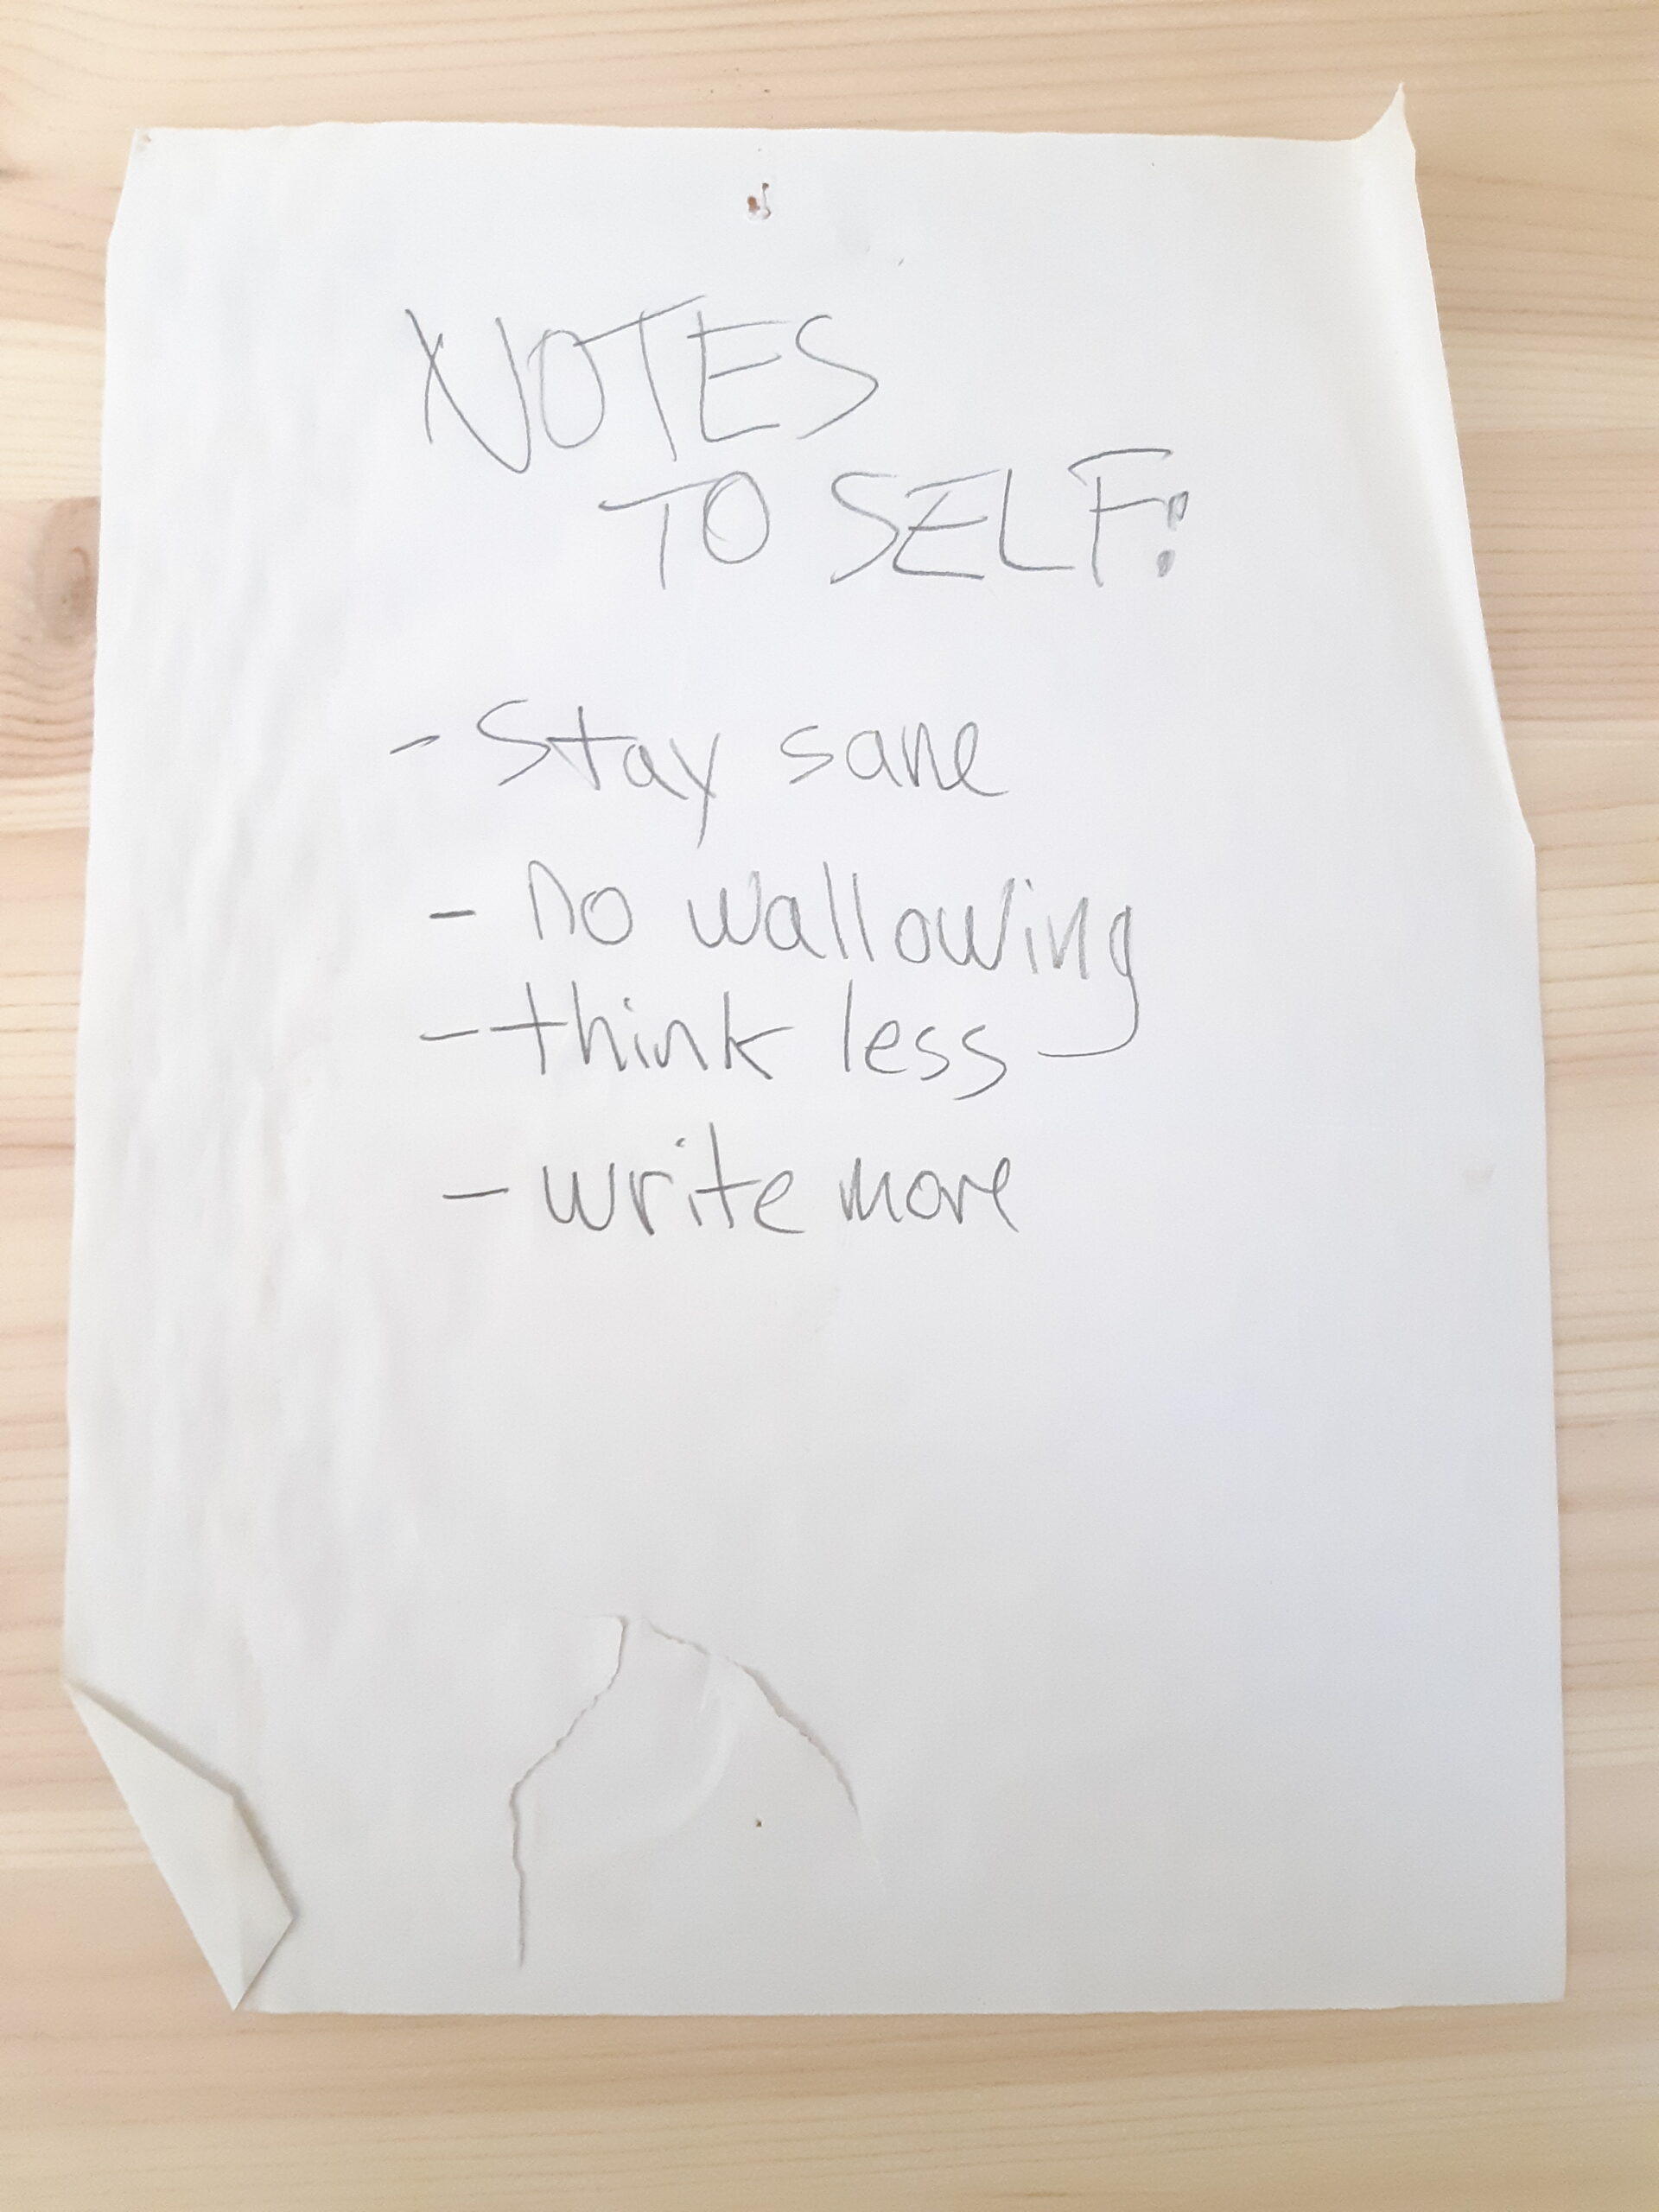 NOTES
TO SELF:
- Stay sane
- no wallowing
- think less
- write more